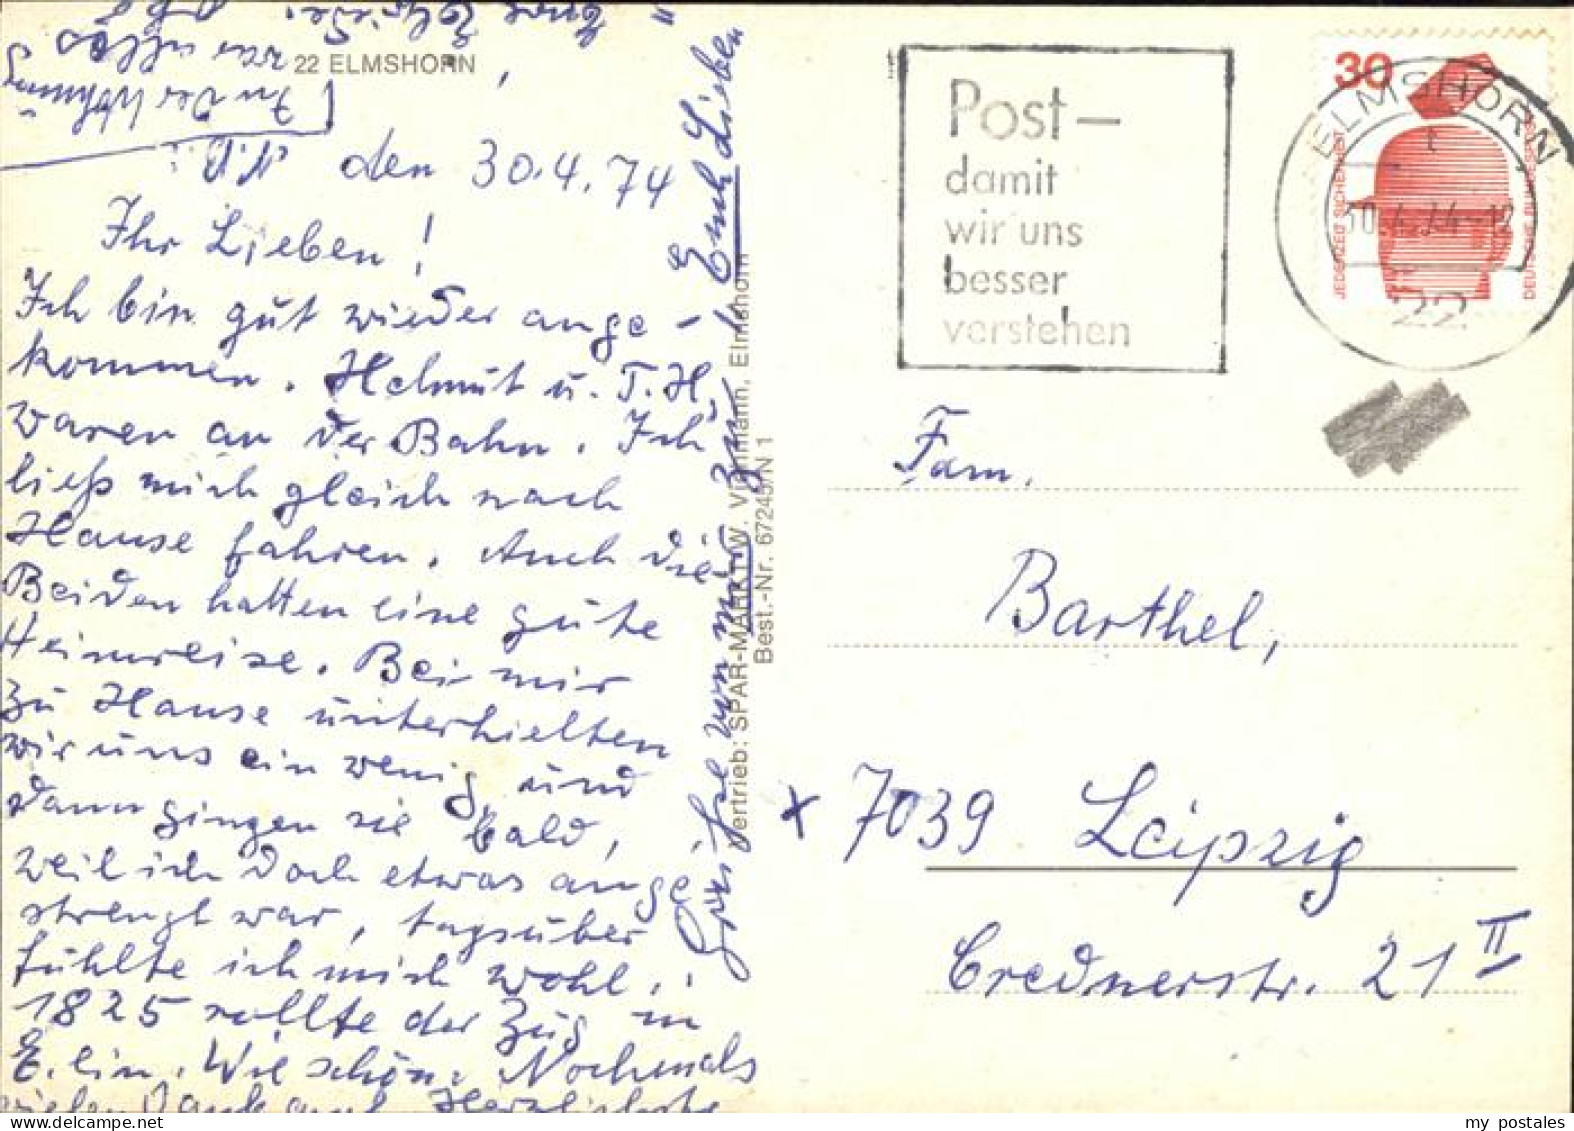 22 ELMSHORN
den 30.4.74
Ihr Lieben!
Ich bin gut wieder ange-
kommen. Helmut u. T.H.
waren an der Bahn. Ich
ließ mich gleich nach
Hause fahren. Auch die
Beiden hatten eine gute
Heimreise. Bei mir
zu Hause unterhielten
wir uns ein wenig und
dann gingen sie bald,
weil ich doch etwas ange
strengt war, tagsüber
fühlte ich mich wohl.
1825 rollte der Zug in
E. ein. Wie schön. Nochmals
vielen Dank auch Herzlichste
Grüße von mir zu Euch Lieben
Eure
In der Wohnung
war alles
Vertrieb: SPAR-MARKT W. Viehmann, Elmshorn
Best.-Nr. 67245/N 1
Post-
damit
wir uns
besser
verstehen
30
JEDERZEIT SICHERHEIT
DEUTSCHE BUNDESPOST
ELMSHORN
t
30.4.74-12
22
Fam.
Barthel,
x 7039 Leipzig
Crednerstr. 21 II
my postales